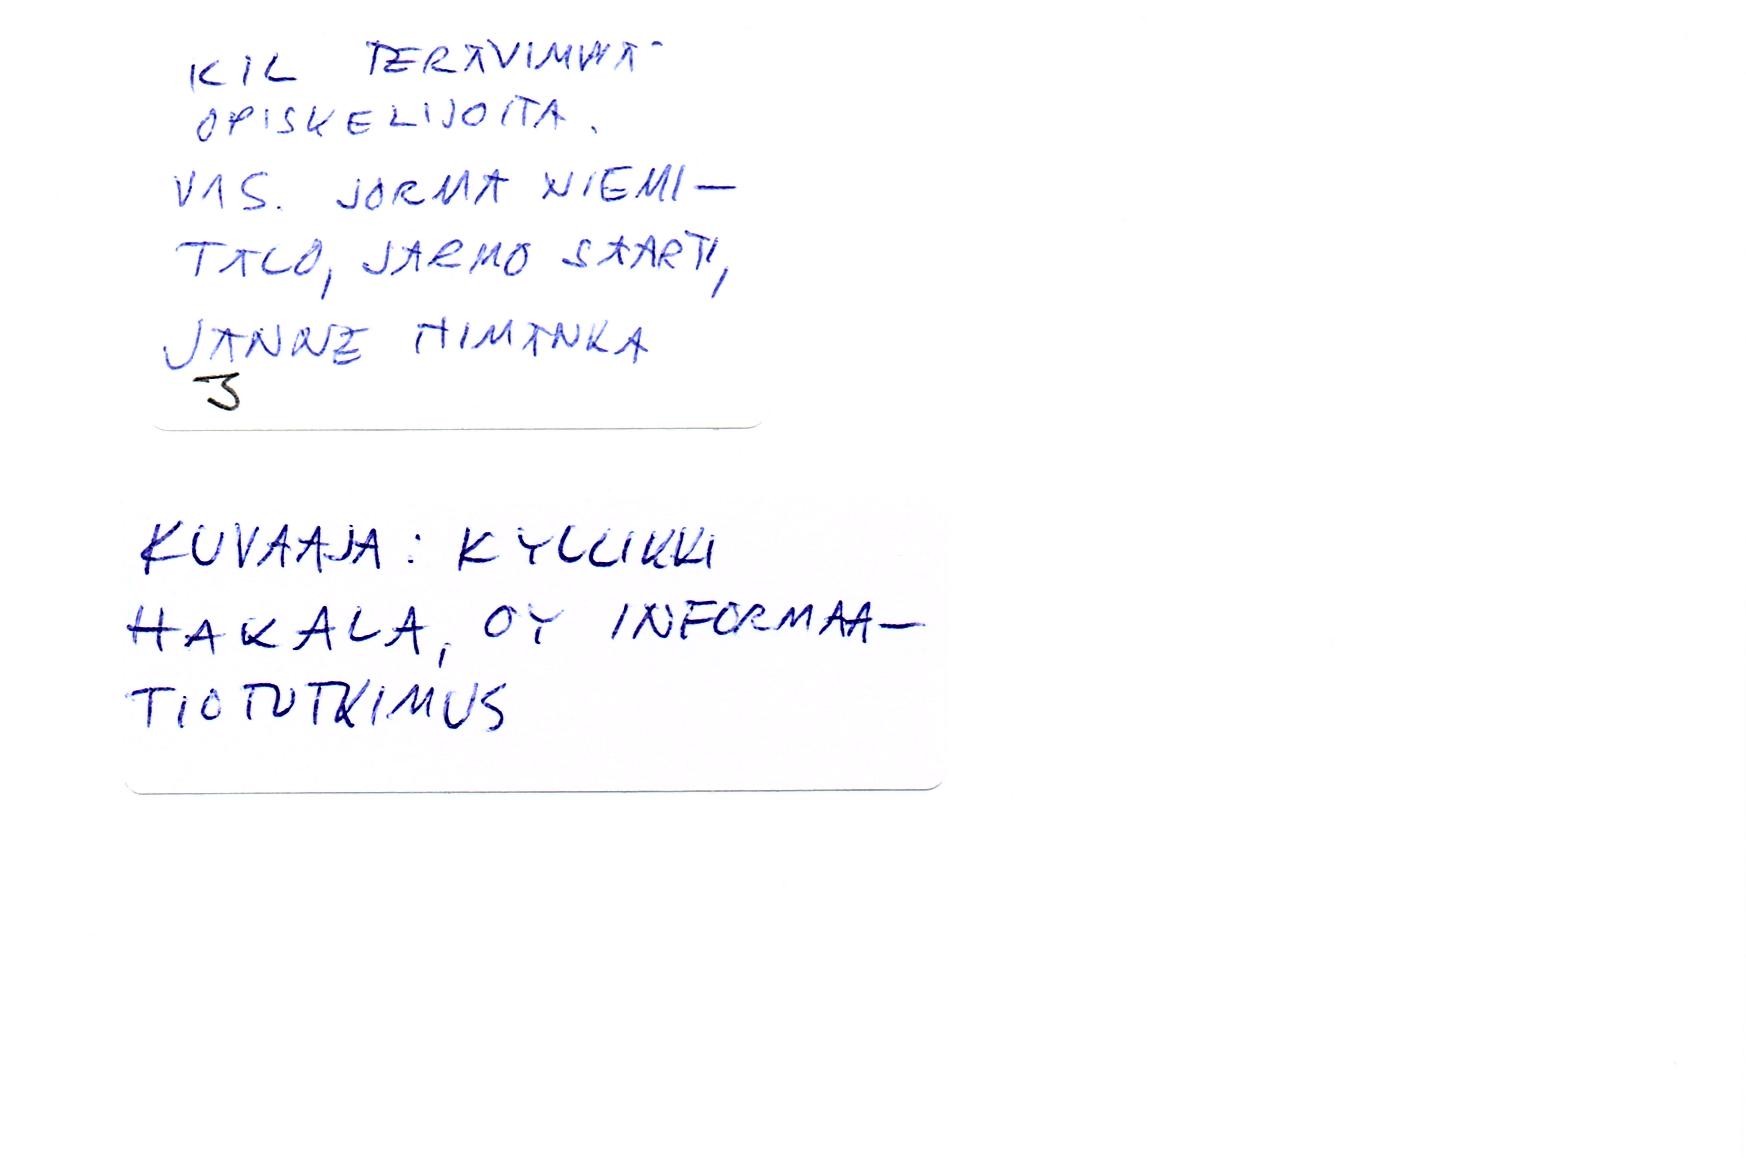 KIL TERÄVIMPIÄ
OPISKELIJOITA.
VAS. JORMA NIEMI-
TALO, JARMO SAARTI,
JANNE HIMANKA
3
KUVAAJA: KYLLIKKI
HAKALA, OY INFORMAA-
TIOTUTKIMUS